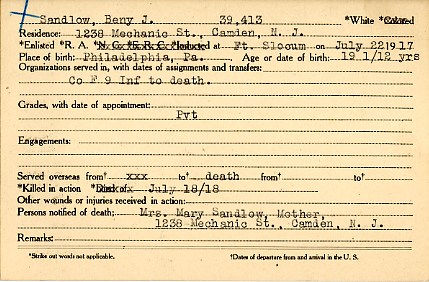 Sandlow, Beny J. 39,413 *White *Colored
Residence: 1238 Mechanic St., Camden, N. J.
*Enlisted *R. A. *N. G. *E. R. C. *Inducted at Ft. Slocum on July 22 1917
Place of birth: Philadelphia, Pa. Age or date of birth: 19 1/12 yrs
Organizations served in, with dates of assignments and transfers:
Co F 9 Inf to death.
Grades, with date of appointment:
Pvt
Engagements:
Served overseas from† xxx to† death from† to†
*Killed in action *Died of x July 18/18
Other wounds or injuries received in action:
Persons notified of death: Mrs. Mary Sandlow, Mother,
1238 Mechanic St., Camden, N. J.
Remarks:
*Strike out words not applicable. †Dates of departure from and arrival in the U. S.